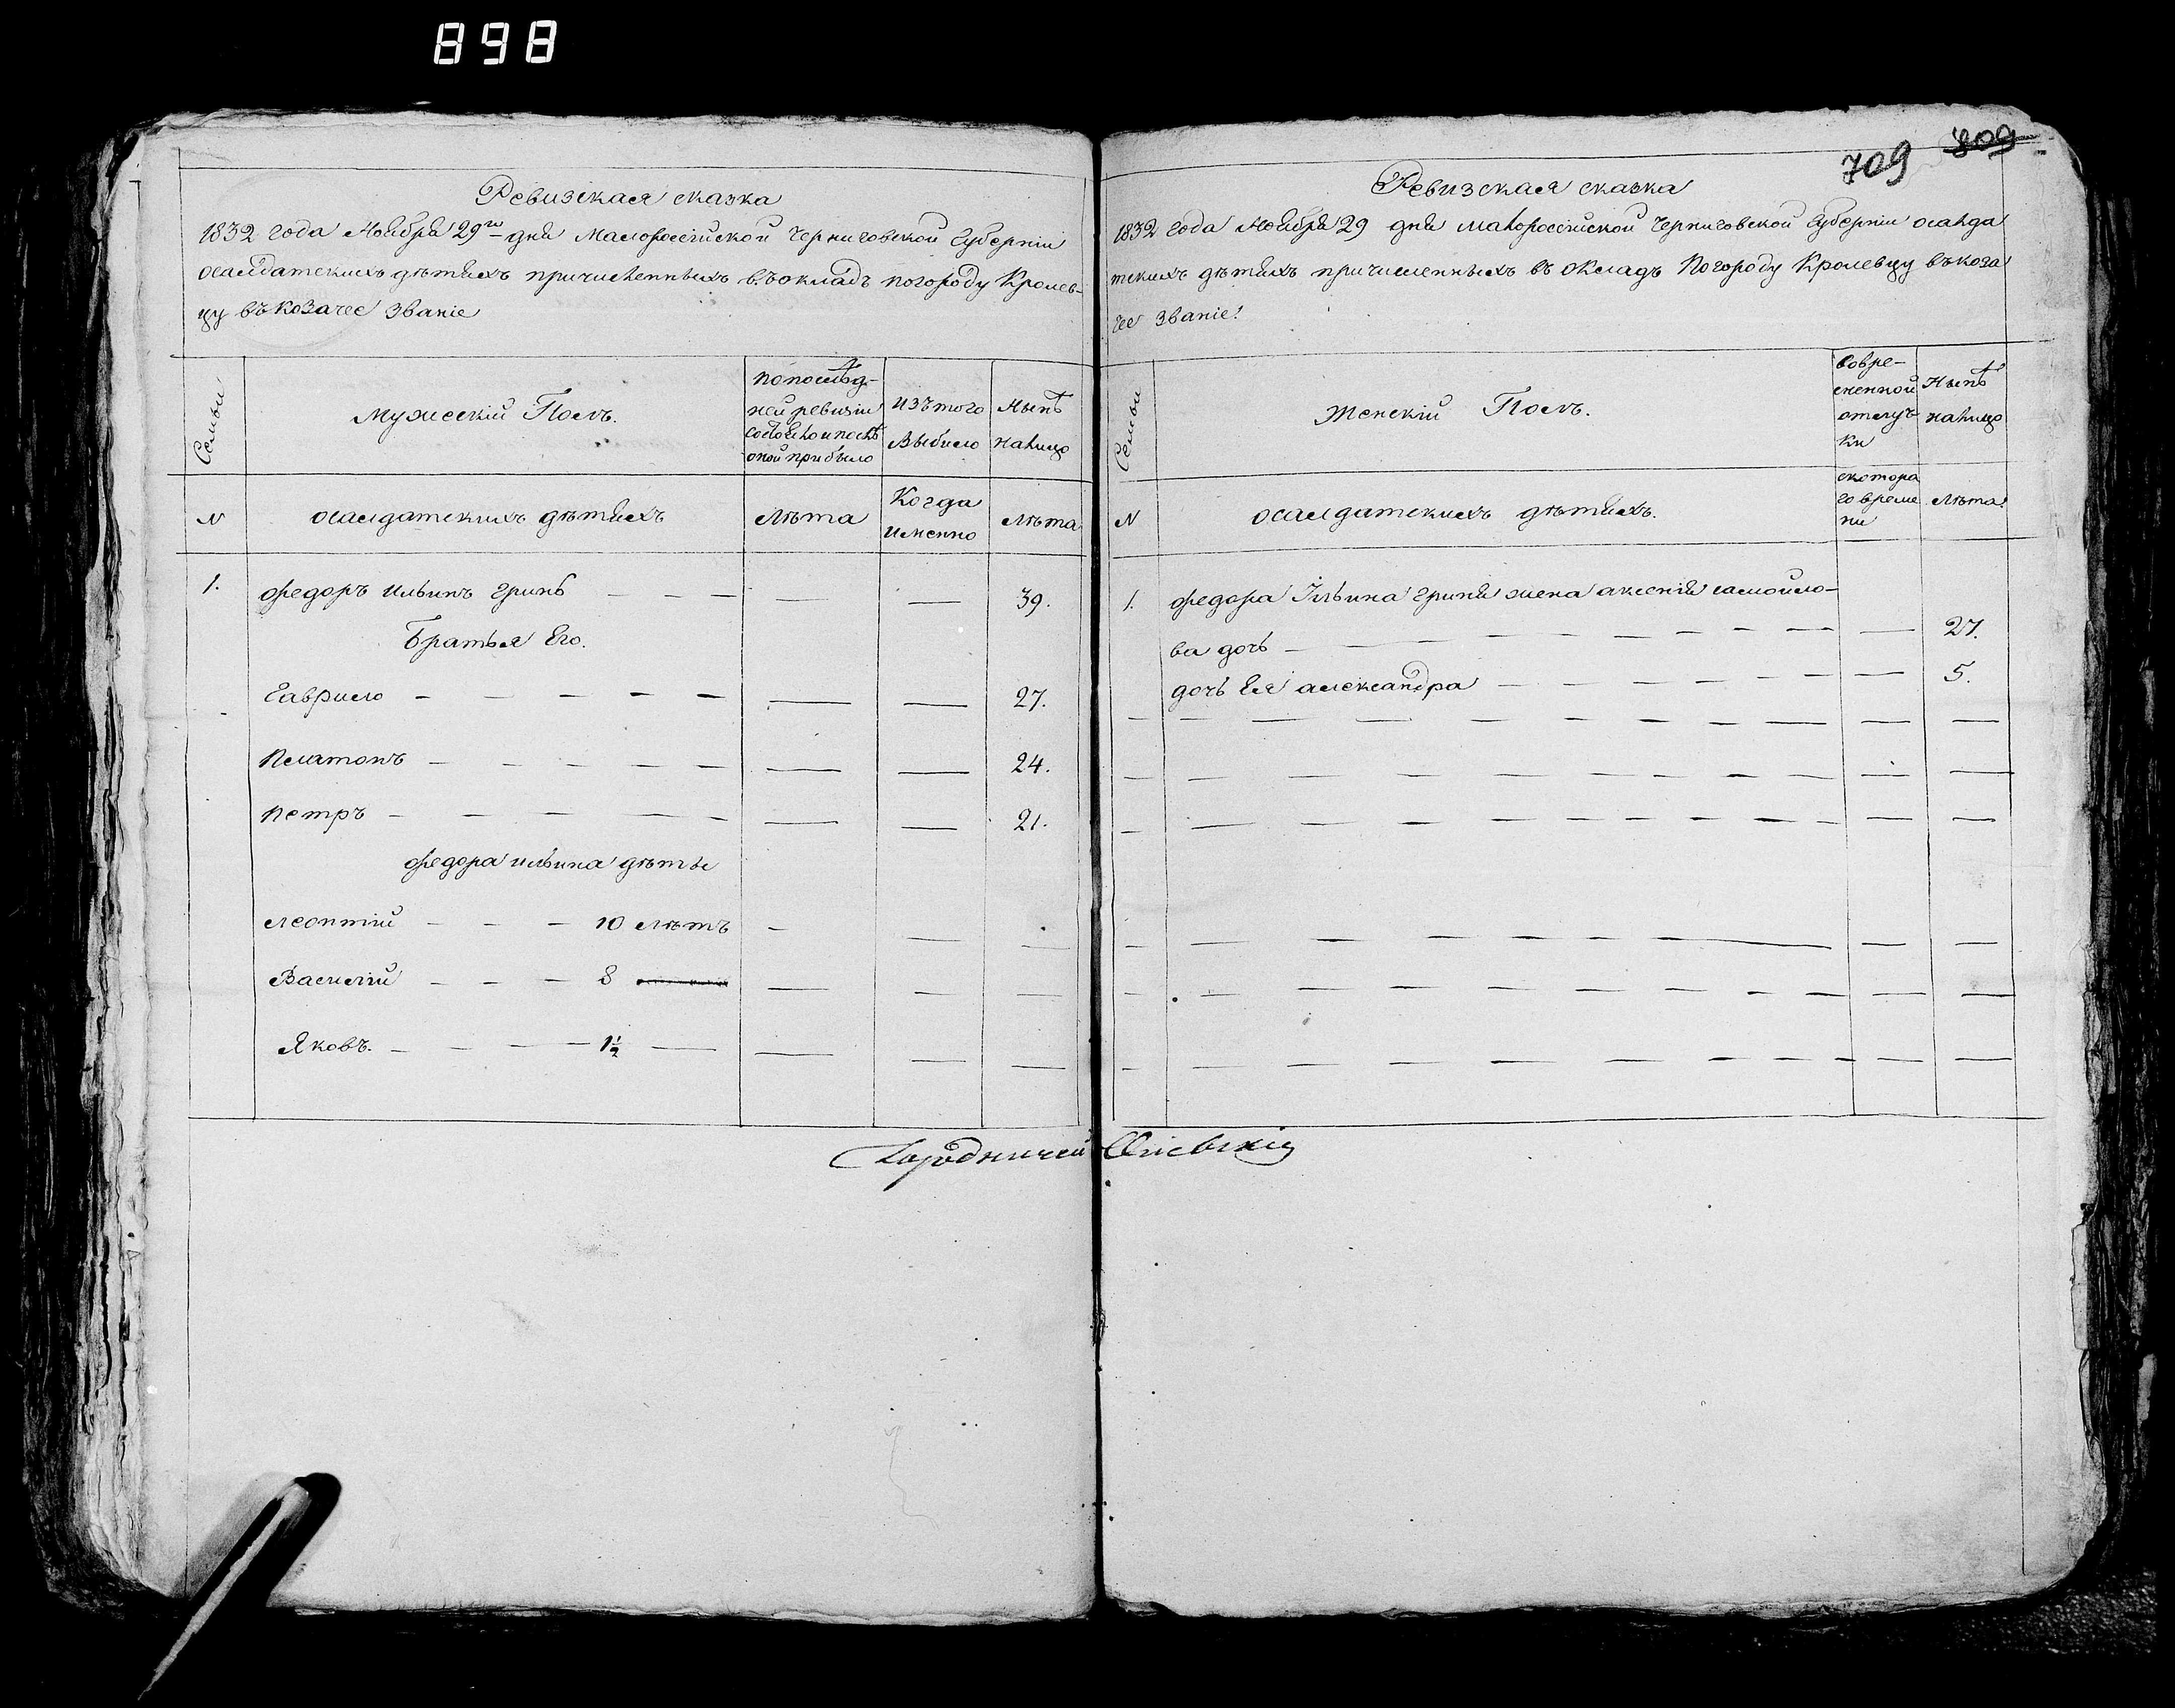 898
Ревизская сказка
1832 года Ноября 29го дня Малороссійской Черниговской Губерніи
осалдатскихъ дѣтяхъ причисленныхъ въ окладъ погороду Кролев-
цу въ козачее званіе
Семьи
Мужескій Полъ.
попослѣд-
ней ревизіи
состояло и послѣ
оной прибыло
Изътого
Выбыло
Нынѣ
налицо
N
осалдатскихъ дѣтяхъ
Лѣта
Когда
именно
Лѣта
1. Федоръ Ильинъ Гринь — — — — — 39.
Братья Его.
Гаврило — — — — — — — 27.
Платонъ — — — — — — — 24.
Петръ — — — — — — — 21.
Федора Ильина дѣты
Леонтій — — — 10 лѣтъ — — —
Василій — — — 8 — — — —
Яковъ. — — — — 1½ — — — —
709 809
Ревизская сказка
1832 года Ноября 29 дня Малороссійской Черниговской Губерніи осалда
тскихъ дѣтяхъ причисленныхъ въ окладъ Погороду Кролевцу въ коза
чее званіе.
Семьи
Женскій Полъ.
Вовре-
менной
отлуч
ки
Нынѣ
налицо
N
осалдатскихъ дѣтяхъ.
скотора
го време
ни
Лѣта
1. Федора Ільина Гриня жена аксенія самойло-
ва дочь — — — — — — — — 27.
дочь Ея александра — — — — — — 5.
Городничей